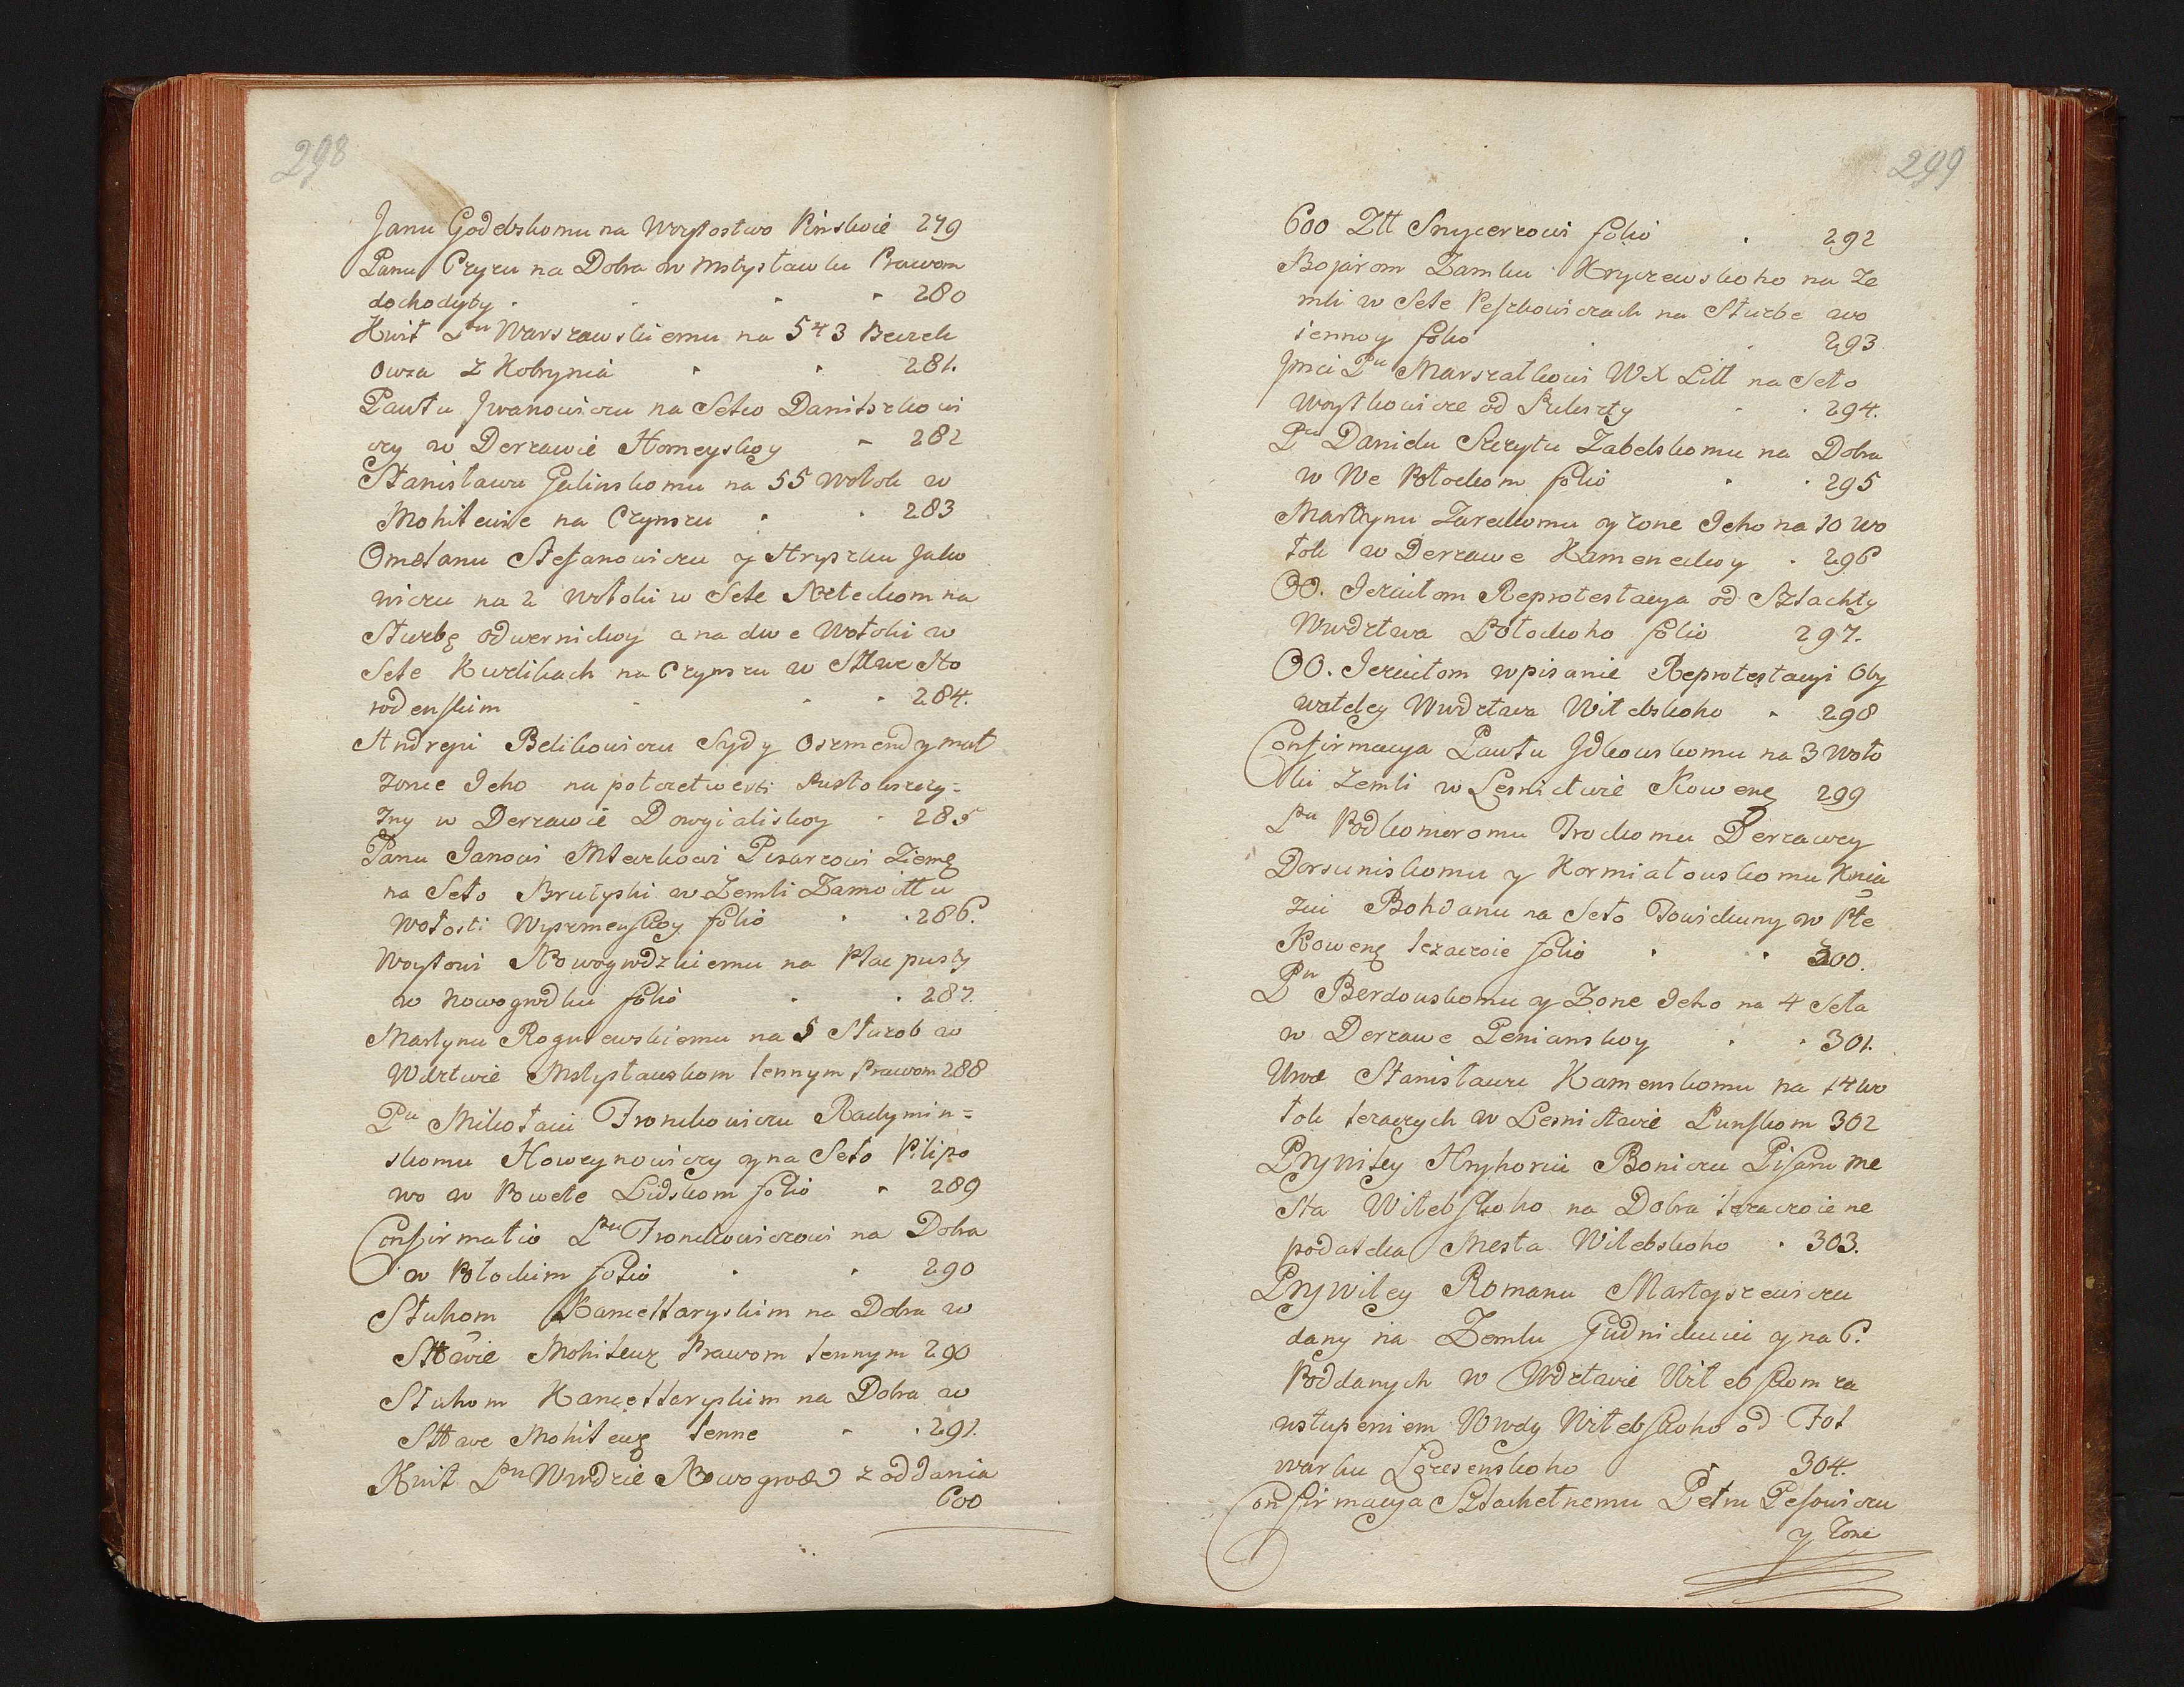 298
Janu Godebskomu na Woytostwo Pinskoie 279
Panu Czyzu na Dobra w Mstysławlu Prawom
dochodyty 280
Kwit Pnu Warszawskiemu na 543 Beczek
Owsa z Kobrynia 281.
Pawłu Jwanowiczu na Sełco Daniłszkowi
czy w Derzawie Homeyskoy 282
Stanisławu Galinskomu na 55 Wołok w
Mohilewie na Czynszu 283
Omelanu Stefanowiczu y Hryszku Jako
wiczu na 2 Wołoki w Sele
na
Słuzbę odwernickoy a na dwe Wołoki w
Sele Kurlikach na Czynszu w Sttwe Ho
rodenskim 284.
Andreiu Belikowiczu Sydy Oszmend y mał
zonce Jeho na połczetwerti Pustowszczy=
zny w Derzawie Dowgialiskoy 285
Panu Janowi Mleczkowi Pisarzowi Ziemę
na Seło Brutyski w Zemli Zamoitt u
Wołosti folio 286.
Woytowi Nowogrodzkiemu na Plac pusty
w Nowogrodku folio 287.
Martynu Rogulewskiemu na 5 Słuzob w
Wdztwie Mstysławskom lennym Prawom 288
Pu Mikołaiu Fronckowiczu Radymin=
skomu Howeynowiczy y na Seło Pilipo
wo w Powete Lidskom folio 289
Confirmatio Pnu Fronckowiczowi na Dobra
w Połockim folio 290
Słuhom Kancellaryskim na Dobra w
Sttwie Mohilewę Prawom lennym 290
Słuhom Kancellaryskim na Dobra w
Sttwe Mohilewę lenne 291.
Kwit Pnu Wwdzie Nowogrod z oddania
600
299
600 Ztt Snycerzowi folio 292
Bojarom Zamku Kryczewskoho na Ze
mli w Sele Peszkowiczach na Słuzbe wo
iennoy folio 293
Jmci Pu Marszałkowi WX Litt na Seło
Woytkowicze od 294.
Pu Danielu Szczytu Zabelskomu na Dobra
w We Połockom folio 295
Martynu Zareckomu y zone Jeho na 10 Wo
łok w Derzawe Kameneckoy 296
OO. Jezuitom Reprotestacya od Szlachty
Wwdztwa Połockoho folio 297.
OO. Jezuitom wpisanie Reprotestacyi Oby
wateley Wwdztwa Witebskoho 298
Confirmacya Pawłu Jdkowskomu na 3 Woło
ki Zemli w Lesnictwie Kowenę 299
Pnu Podkomoromu Trockomu Derzawcy
Dorsuniskomu y Kormiałowskomu Knia
ziu Bohdanu na Seło Towickuny w Pte
Kowenę lezaczoie folio 300.
Pu Berdowskomu y Zone Jeho na 4 Seła
w Derzawe Penianskoy 301.
Uwe Stanisławu Kamenskomu na 14 Wo
łok lezaczych w Lesnictwie Punskom 302
Prywiley Hryhoriu Boniczu Pisaru Me
sta Witebskoho na Dobra lezaczoie ne
podaleka Mesta Witebskoho 303.
Prywiley Romanu Martyszewiczu
dany na Zemlu Gudnickuiu y na 6.
Poddanych w Wdztwie Witebskom za
ustupeniem Wwdy Witebskoho od Fol
warku 304.
Confirmacya Szlachetnemu Petru Pesowiczu
y Zone